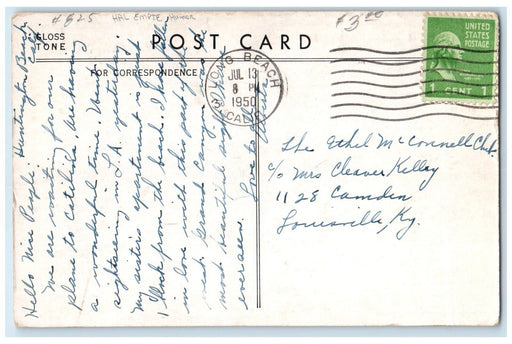 #625 HAL EMPTE, HUMOR
$3.00
GLOSS
TONE
POST CARD
FOR CORRESPONDENCE
LONG BEACH
JUL 13
8 PM
1950
CALIF.
UNITED
STATES
POSTAGE
1 CENT 1
Huntington Beach
Cal.
Hello Nice People:
We are waiting for our
plane to Catilina. We having
a wonderful time. Went
sightseeing in L.A. yesterday.
My sister's apartment is just
1 block from the beach. I have fallen
in love with this part of the
west. Grand Canyon is the
most beautiful sight I have
ever seen. Love to
The Ethel McConnell Club.
c/o Mrs Cleaver Kelley
1128 Camden
Louisville, Ky.